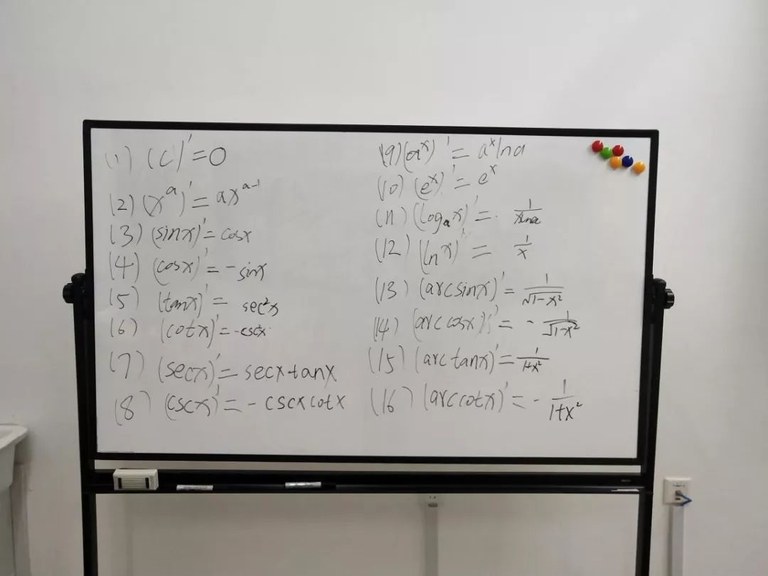 (1) (c)'=0
(2) (x^a)'=ax^{a-1}
(3) (sinx)'=cosx
(4) (cosx)'=-sinx
(5) (tanx)'= sec²x
(6) (cotx)'=-csc²x
(7) (secx)'=secx·tanx
(8) (cscx)'=-cscxcotx
(9) (a^x)'=a^xlna
(10) (e^x)'=e^x
(11) (log_a x)'= 1/xlna
(12) (lnx)'= 1/x
(13) (arcsinx)'=1/√1-x²
(14) (arccosx)'=-1/√1-x²
(15) (arctanx)'=1/1+x²
(16) (arccotx)'=-1/1+x²